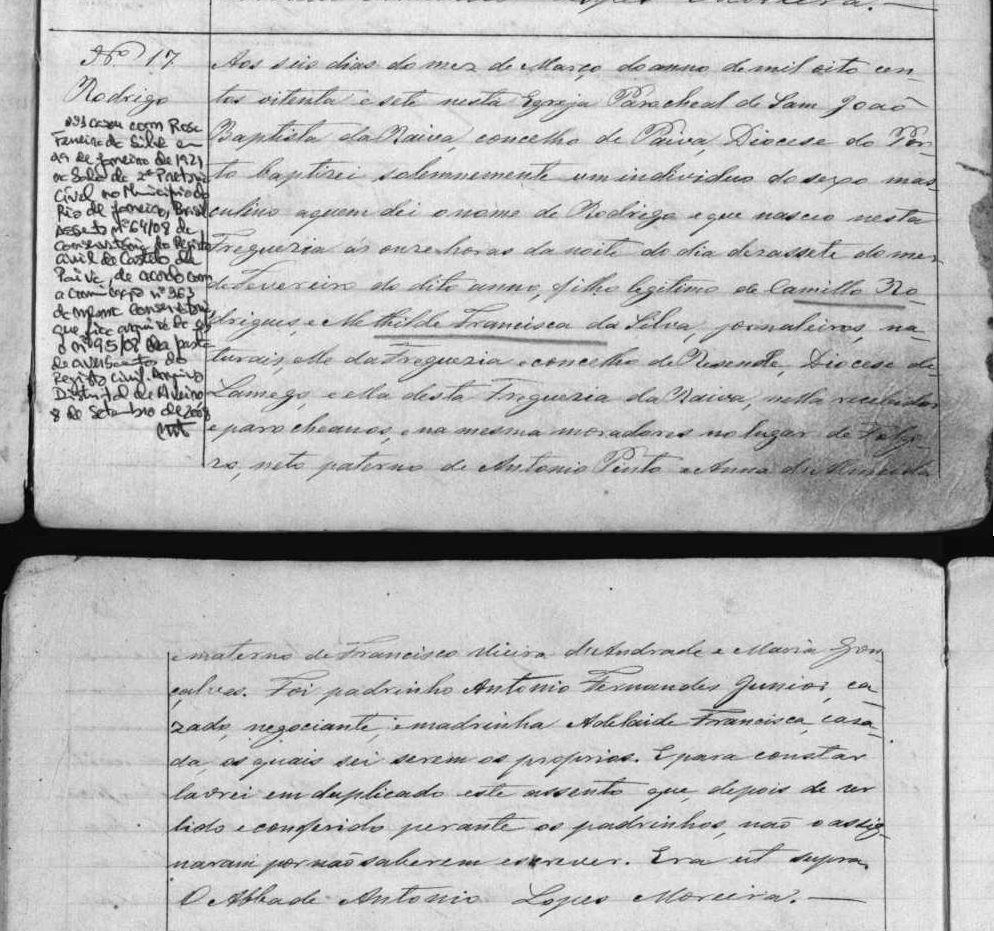 Lopes Moreira. —
Nº 17
Rodrigo
Nº1 casou com Rosa
Ferreira da Silva em
29 de Janeiro de 1921
na Sala da 2ª Pretoria
Civel no Municipio do
Rio de Janeiro, Brasil
Assento nº 64/08 da
Conservatória do Registo
Civil de Castelo de
Paiva, de acordo com
a comunicação nº 363
da mesma Conservatória
que fica arquivada sob
o nº 95/08 da pasta
de averbamentos do
Registo Civil. Arquivo
Distrital de Aveiro
8 de Setembro de 2008
Aos seis dias do mez de Março do anno de mil oito cen-
tos oitenta e sete nesta Egreja Parocheal de Sam João
Baptista da Raiva, concelho de Paiva, Diocese do Por-
to baptizei solemnemente um individuo do sexo mas-
culino a quem dei o nome de Rodrigo e que nasceo nesta
Freguezia ás onze horas da noite do dia dezassete do mez
de Fevereiro do dito anno, filho legitimo de Camillo Ro-
drigues, e Mathilde Francisca da Silva, jornaleiros, na-
turais, elle da Freguezia e concelho de Resende, Diocese de
Lamego, e ella desta Freguezia da Raiva, nella recebidos
e parocheanos, e na mesma moradores no lugar de Folgo-
zo, neto paterno de Antonio Pinto e Anna de Almeida
e materno de Francisco Vieira de Andrade e Maria Gon-
çalves. Foi padrinho Antonio Fernandes Junior, ca-
zado, negociante e madrinha Adelaide Francisca, casa-
da, os quais sei serem os proprios. E para constar
lavrei em duplicado este assento que, depois de ser
lido e conferido perante os padrinhos, não o assig-
naram por não saberem escrever. Era ut supra
O Abbade Antonio Lopes Moreira. —